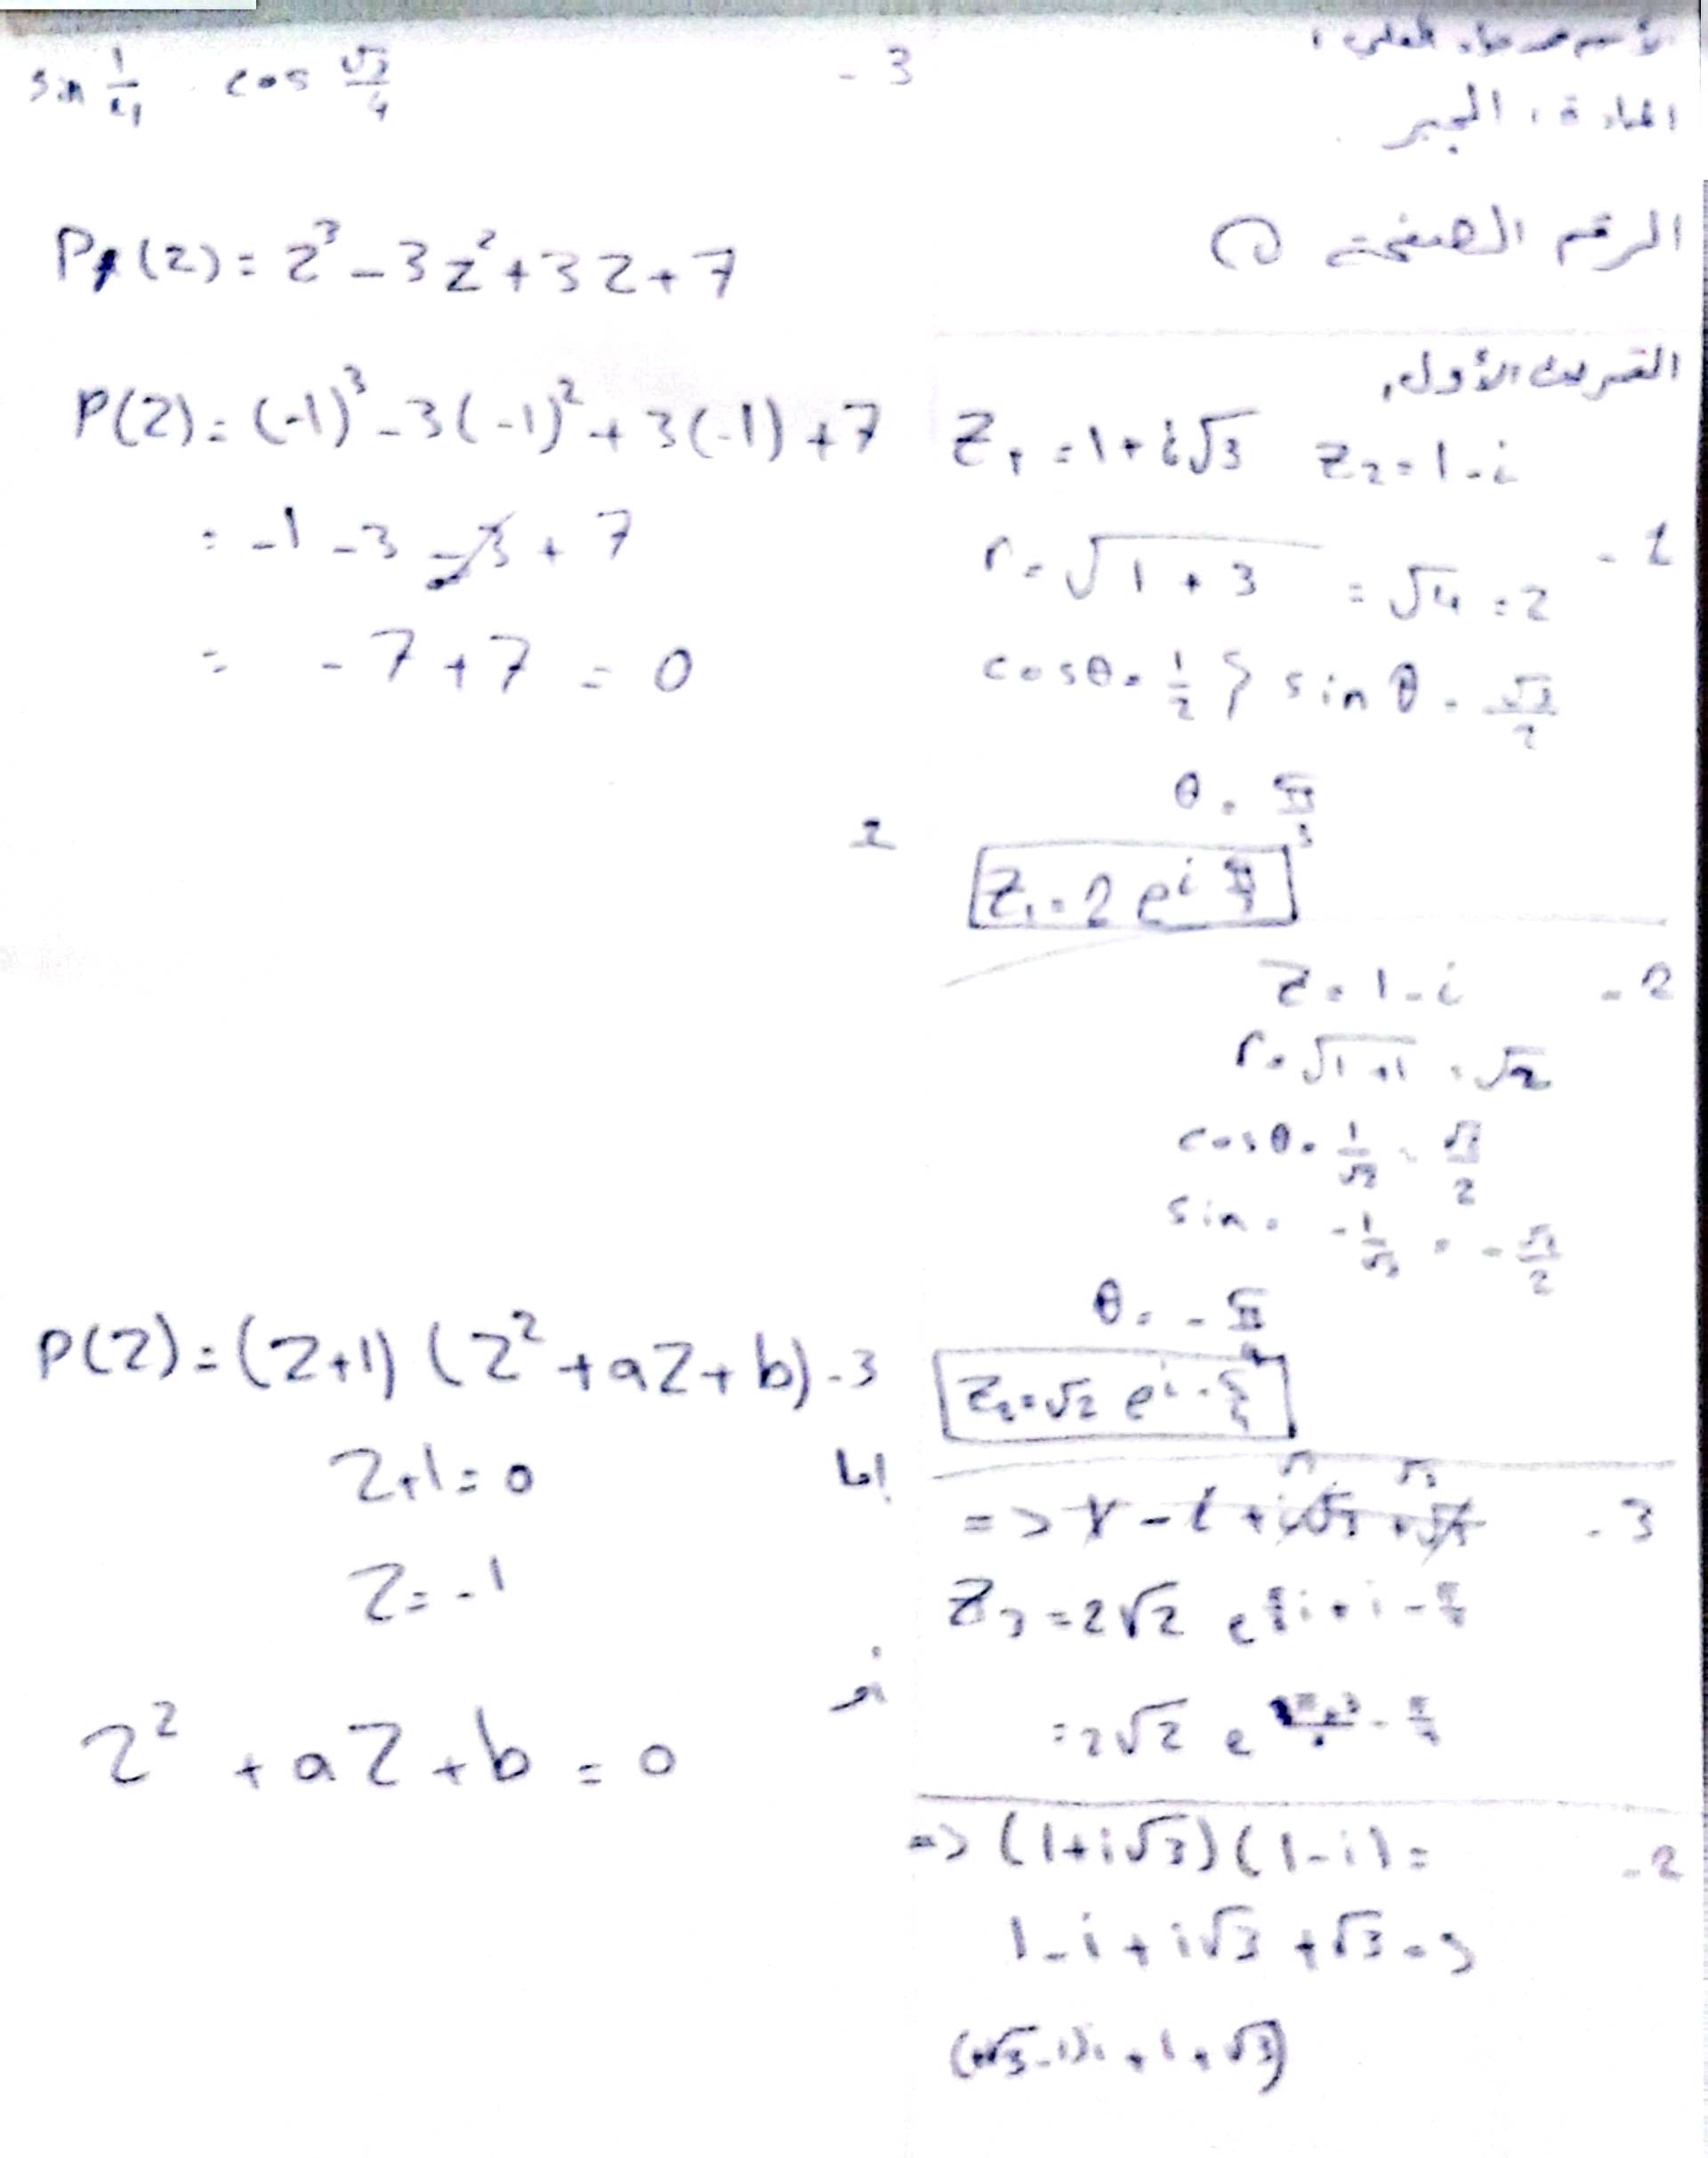 المادة: الجبر
الرقم الصفحة
التمرين الأول:
Z₁ = 1 + i√3 Z₂ = 1 - i
- 1
r = √(1 + 3) = √4 = 2
cosθ = 1/2 } sin θ = √3/2
θ = π/3
Z₁ = 2 e^(i π/3)
- 2
Z = 1 - i
r = √(1 + 1) = √2
cosθ = 1/√2 = √2/2
sin = -1/√2 = -√2/2
θ = - π/4
Z₂ = √2 e^(i - π/4)
- 3
Z₃ = 2√2 e^(π/3 i + i - π/4)
= 2√2 e
- 2
=> (1 + i√3)(1 - i) =
1 - i + i√3 + √3 =>
(√3 - 1)i + 1 + √3
- 3
sin 1/4 cos √3/4
P(Z) = Z³ - 3Z² + 3Z + 7
P(Z) = (-1)³ - 3(-1)² + 3(-1) + 7
= -1 - 3 - 3 + 7
= - 7 + 7 = 0
P(Z) = (Z + 1) (Z² + aZ + b) - 3
إما Z + 1 = 0
Z = - 1
أو
Z² + aZ + b = 0